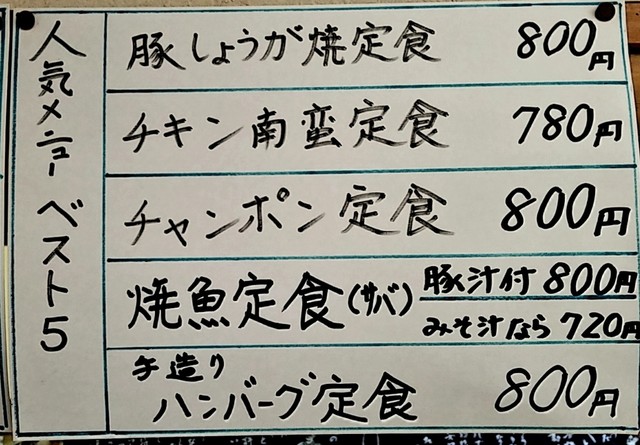 人気メニュー ベスト5
豚しょうが焼定食 800円
チキン南蛮定食 780円
チャンポン定食 800円
焼魚定食(サバ) 豚汁付 800円
みそ汁なら 720円
手造り
ハンバーグ定食 800円